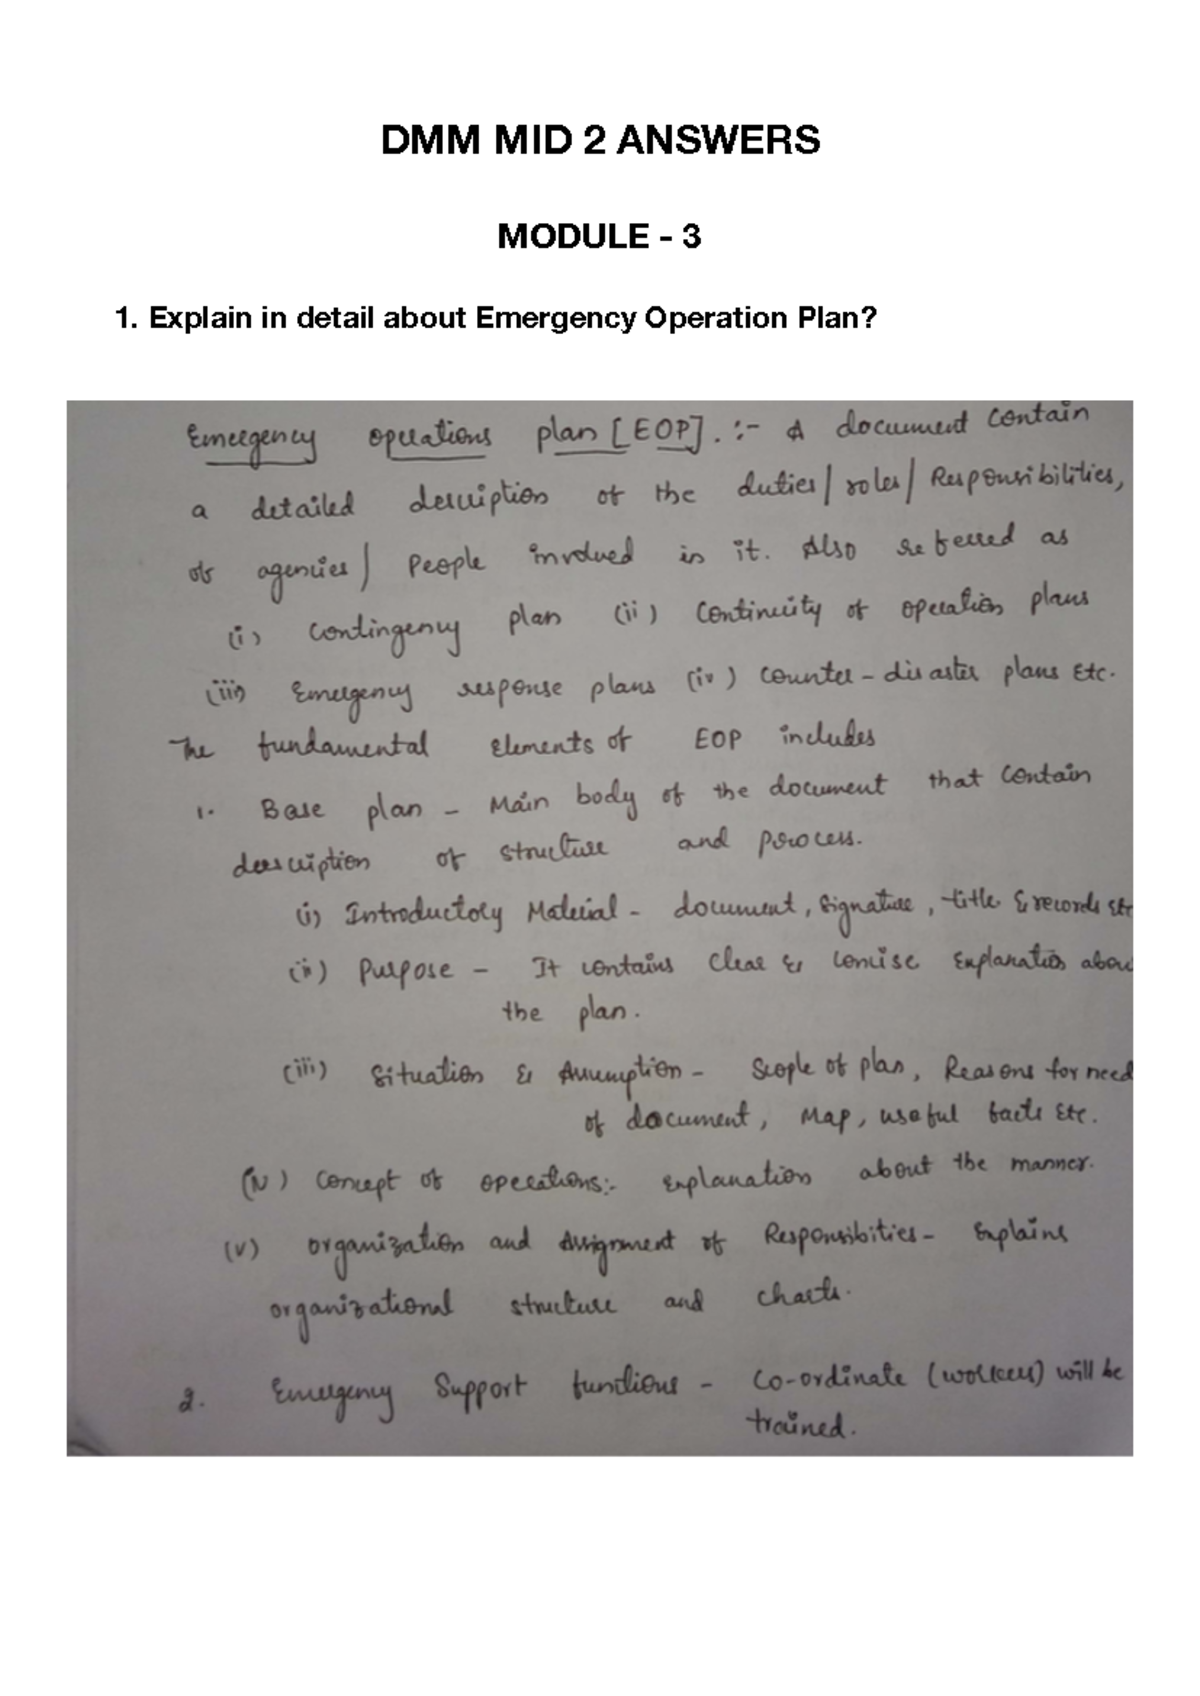 DMM MID 2 ANSWERS
MODULE - 3
1. Explain in detail about Emergency Operation Plan?
Emergency operations plan [EOP]. :- A document contain
a detailed description of the duties/ roles/ Responsibilities,
of agencies/ People involved in it. Also referred as
(i) Contingency plan (ii) Continuity of operation plans
(iii) Emergency response plans (iv) counter-disaster plans Etc.
The fundamental Elements of EOP includes
1. Base plan - Main body of the document that contain
description of structure and process.
(i) Introductory Material - document, Signature, title & records etc
(ii) Purpose - It contains clear & concise Explanation abou
the plan.
(iii) Situation & Assumption - Scople of plan, Reasons for need
of document, Map, useful facts Etc.
(iv) Concept of operations:- Explanation about the manner.
(v) organization and Assignment of Responsibities - Explains
organizational structure and charts.
2. Emergency Support functions - Co-ordinate (workers) will be
trained.